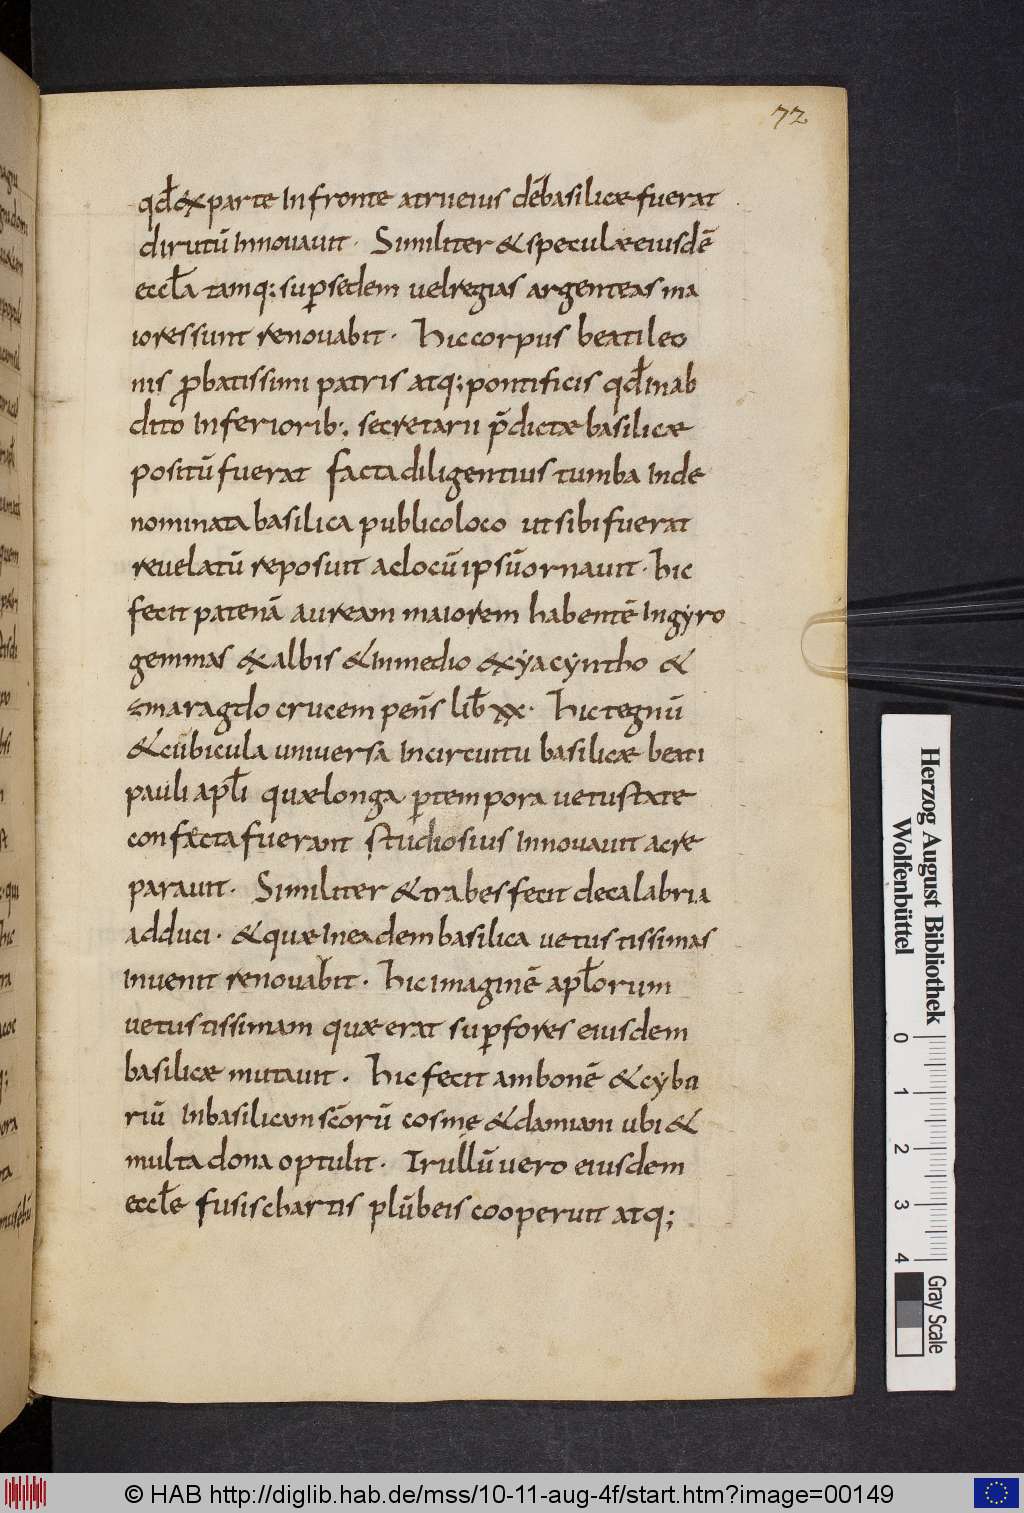 72
qđ &x parte In fronte atrii eius dē basilicæ fuerat
dirutū Innovavit · Similiter & speculæ eiusdē
eccła tamq; sup sedem vel regias argenteas ma
iores sunt renovabit · Hic corpus beati leo
nis probatissimi patris atq; pontificis qđ in ab
dito Inferiorib; secretarii p̄dictæ basilicæ
positū fuerat facta diligentius tumba Inde
nominata basilica publico loco ut sibi fuerat
revelatū reposuit ac locū ipsū ornavit · hic
fecit patenā auream maiorem habentē In gyro
gemmas &x albis & In medio &x yacyntho &
smaragdo crucem pens̄ lib̄ xx · Hic tegnū
& cubicula universa In circuitu basilicæ beati
pauli apłi quæ longa p tempora vetustate
confecta fuerant studiosius Innovavit ac re
paravit · Similiter & trabes fecit de calabria
adduci · & quæ In eadem basilica vetustissimas
Invenit renovabit · hic imaginē apłorum
vetustissimam quæ erat sup fores eiusdem
basilicæ mutavit · Hic fecit ambonē & cybu
riū In basilicam scōrū cosme & damiani ubi &
multa dona optulit · Trullū vero eiusdem
eccłe fusis chartis plūbeis cooperuit atq;
Herzog August Bibliothek
Wolfenbüttel
0 1 2 3 4
Gray Scale
© HAB http://diglib.hab.de/mss/10-11-aug-4f/start.htm?image=00149